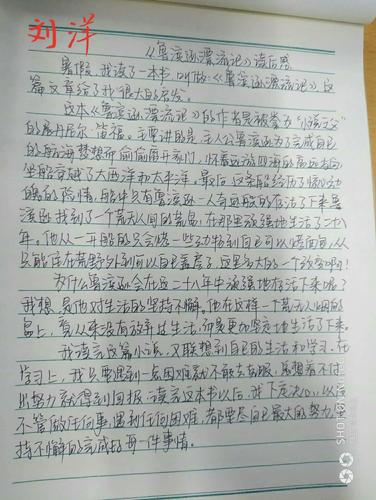 刘洋
《鲁滨逊漂流记》读后感
暑假,我读了一本书,叫做《鲁滨逊漂流记》,这
篇文章给了我很大的启发。
这本《鲁滨逊漂流记》的作者是被誉为"小说之父"
的展丹尼尔·笛福。主要讲的是:主人公鲁滨逊为了完成自己
的航海梦想而偷偷离开家门,怀着远游四海的高远志向,
坐船穿越了大西洋和太平洋。最后,这条船经历了惊心动
魄的险情,船中只有鲁滨逊一人奇迹般的存活了下来。鲁
滨逊找到了一个荒无人烟的荒岛,在那里顽强地生活了二十八
年。他从一开始的只会烧一些动物到自己可以烤面包,从
只能住在荒野外到可以自己盖房子,这是多大的一个改变啊!
为什么鲁滨逊会在这二十八年中顽强地存活下来呢?
我想,是他对生活的坚持不懈。他在这样一个荒无人烟的
岛上,看从来没有放弃过生活,而是更加坚定地生活了下来。
我读完这篇小说,又联想到自己的生活和学习。在
学习上,我只要遇到一点困难就不敢去克服,总想着不付
出努力就得到回报。读完这本书以后,我下定决心,以后
不管做任何事,遇到任何困难,都要尽自己最大的努力,坚
持不懈的完成好每一件事情。